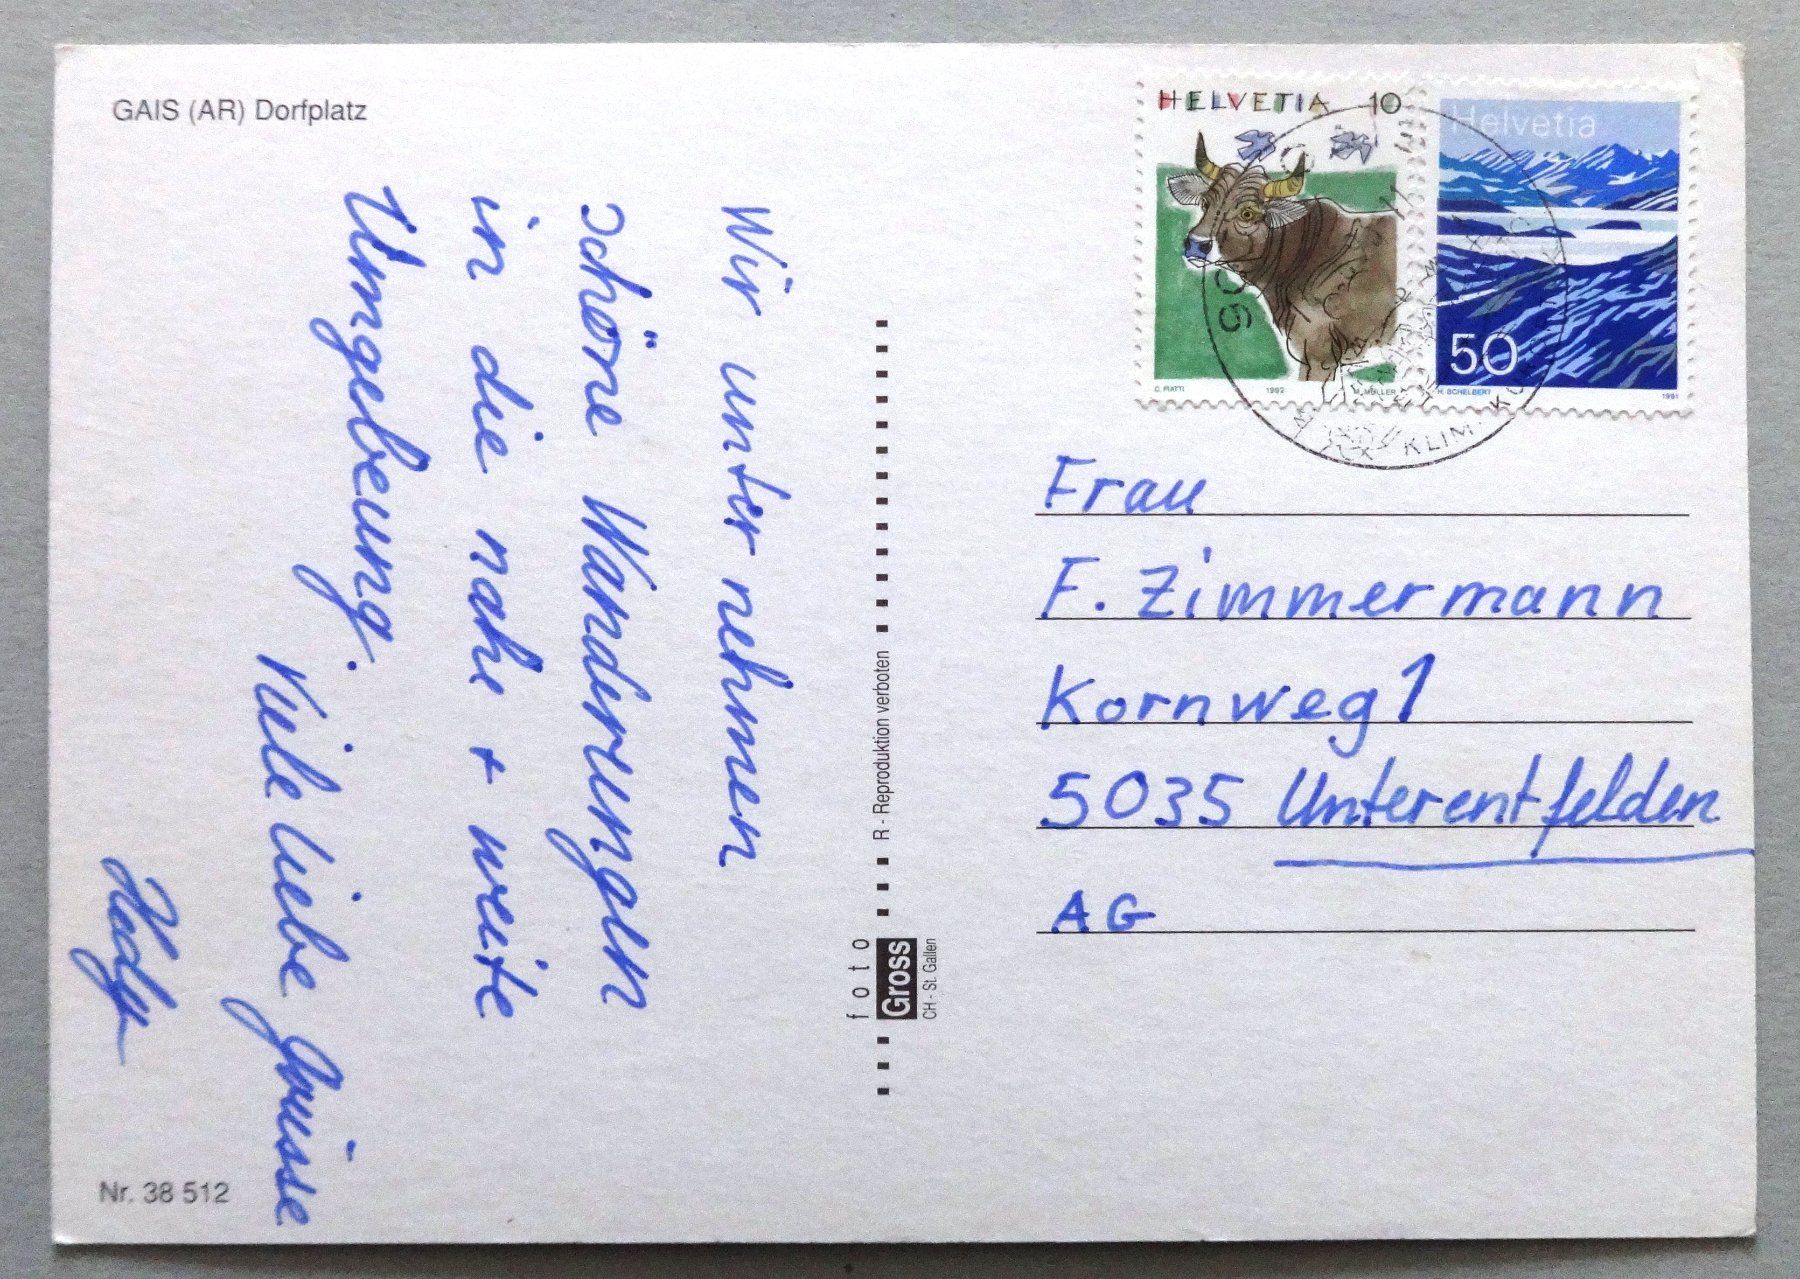 GAIS (AR) Dorfplatz
Wir unternehmen
schöne Wanderungen
in die nahe + weite
Umgebeung.
Viele liebe Grüsse
Hedy
Nr. 38 512
R - Reproduktion verboten
foto
Gross
CH - St. Gallen
HELVETIA 10
C. PIATTI 1992 M. MÜLLER
Helvetia
50
H. SCHELBERT 1991
Frau
F. Zimmermann
Kornweg 1
5035 Unterentfelden
AG